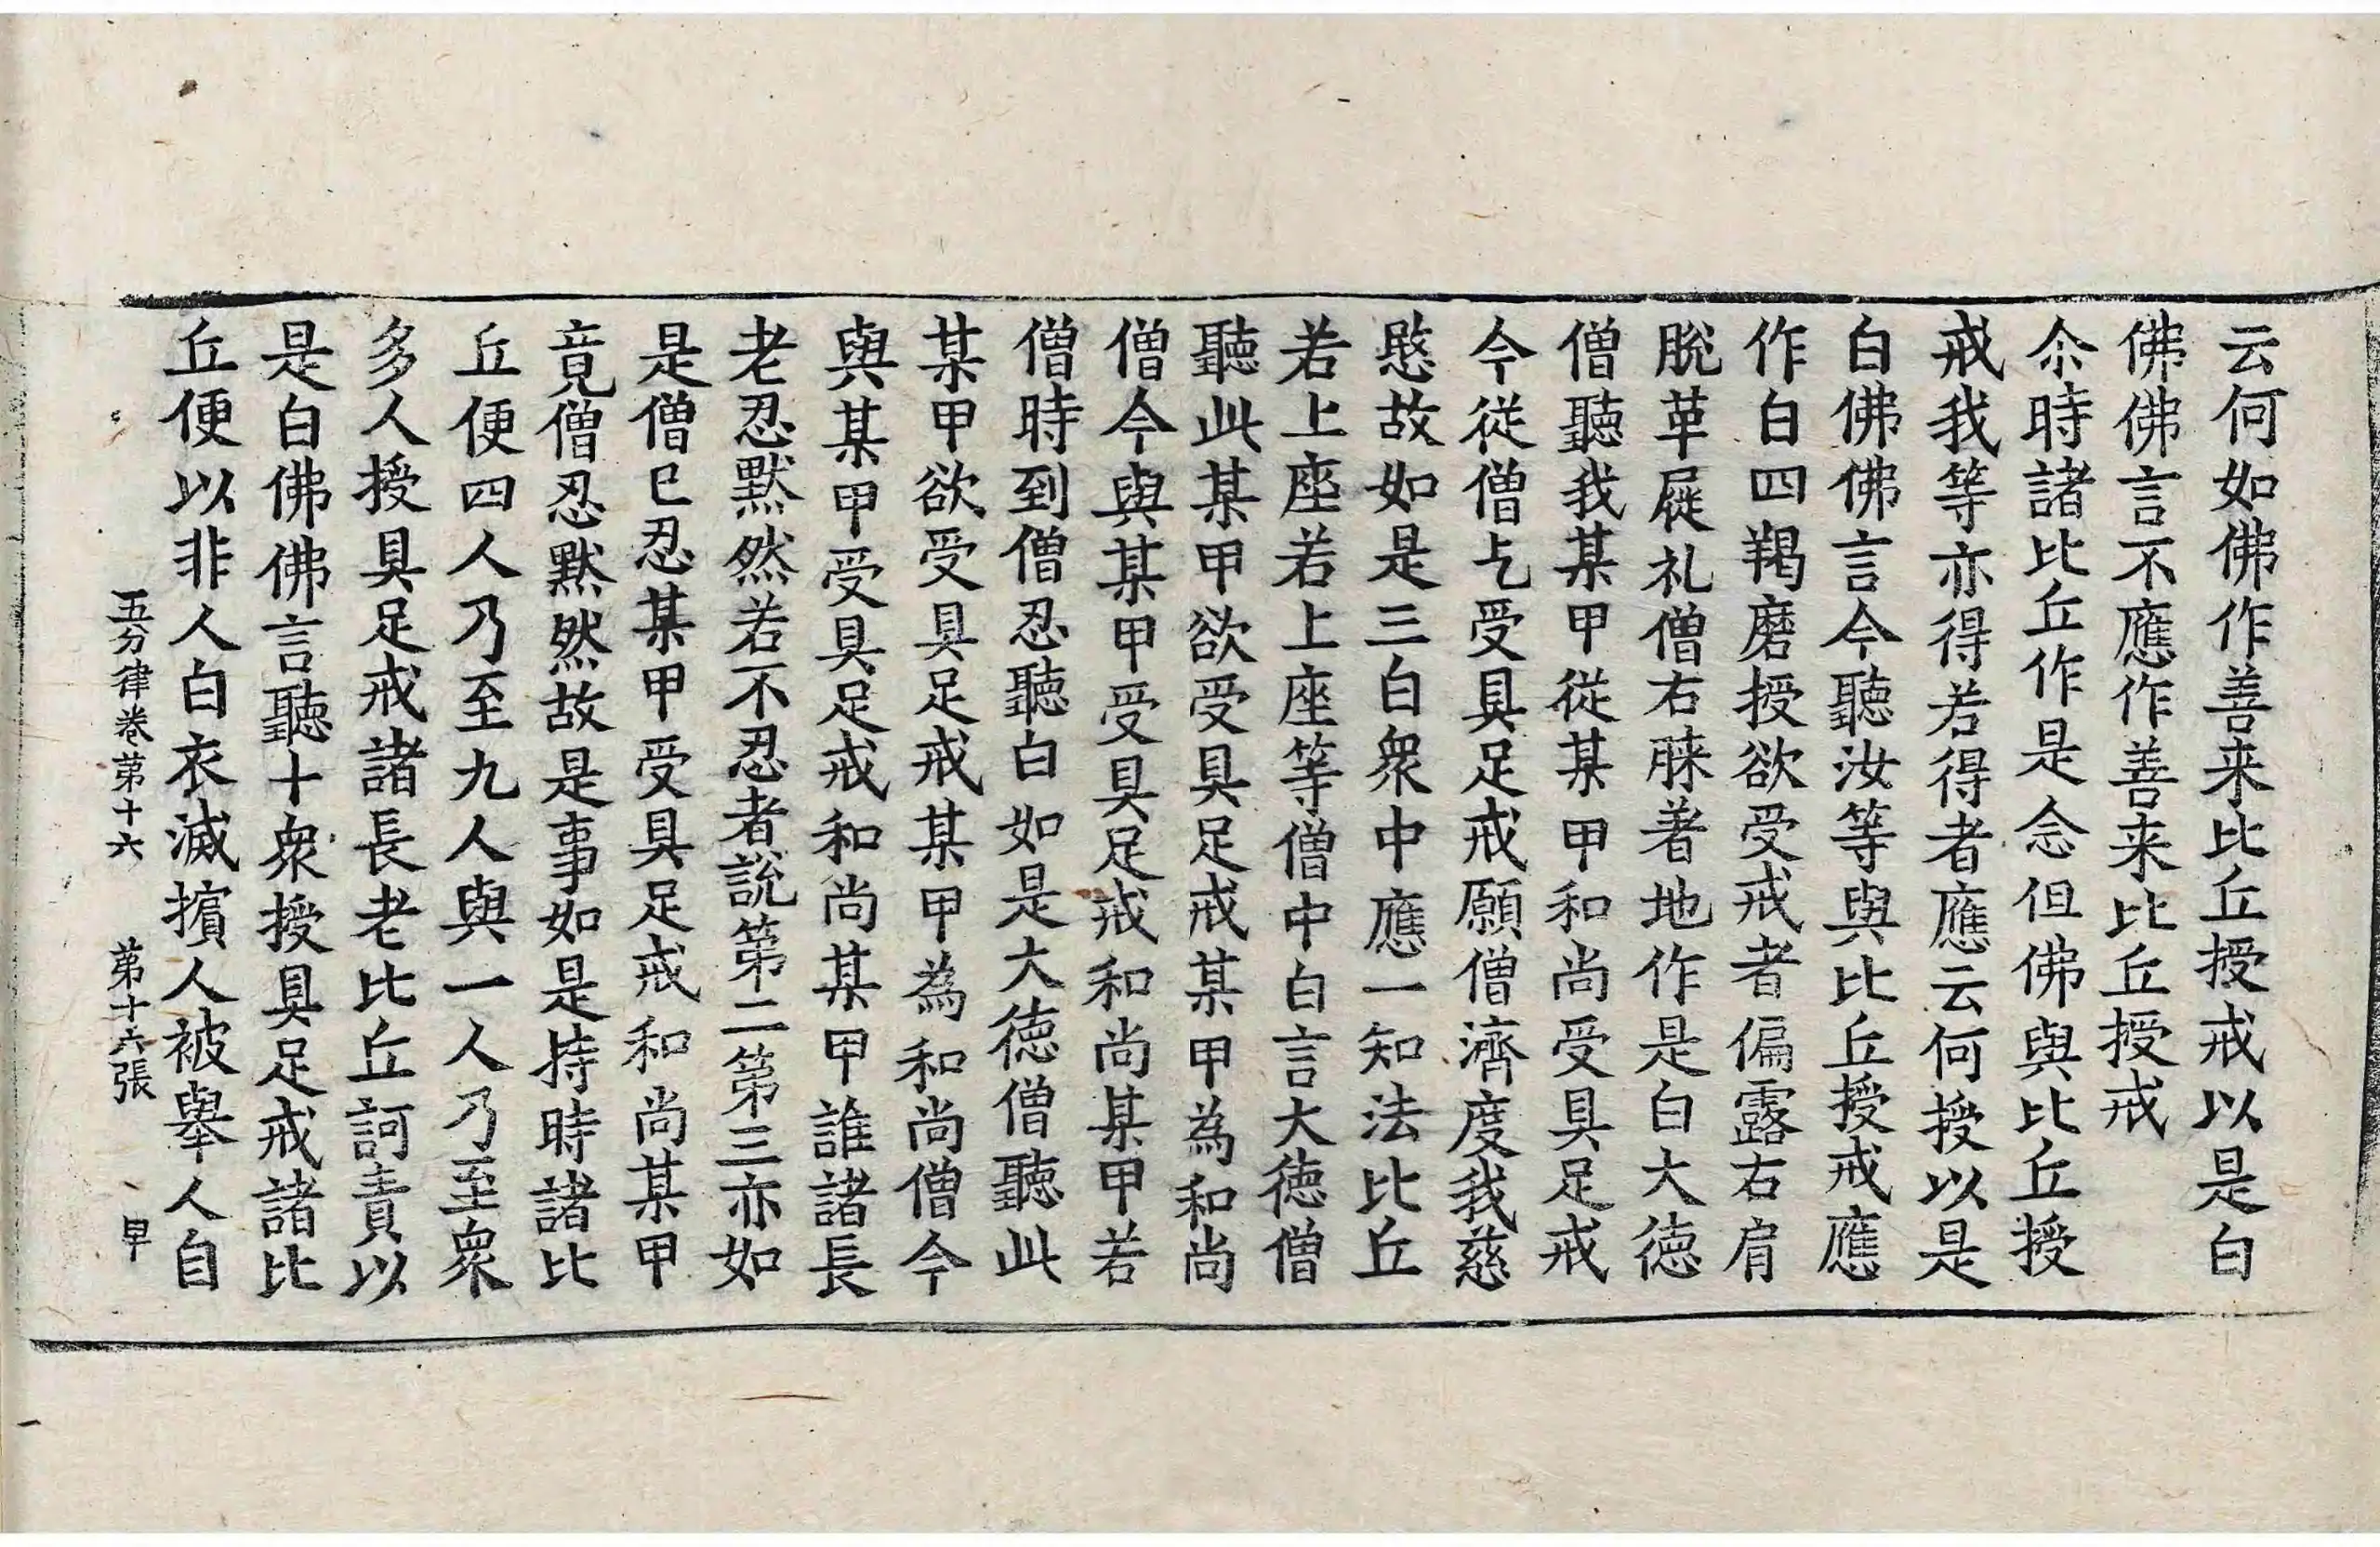 云何如佛作善来比丘授戒以是白
佛佛言不應作善来比丘授戒
尒時諸比丘作是念但佛與比丘授
戒我等亦得若得者應云何授以是
白佛佛言今聽汝等與比丘授戒應
作白四羯磨授欲受戒者偏露右肩
脫革屣礼僧右膝著地作是白大徳
僧聽我某甲從某甲和尚受具足戒
今從僧乞受具足戒願僧濟度我慈
愍故如是三白衆中應一知法比丘
若上座若上座等僧中白言大徳僧
聽此某甲欲受具足戒某甲為和尚
僧今與某甲受具足戒和尚某甲若
僧時到僧忍聽白如是大徳僧聽此
某甲欲受具足戒某甲為和尚僧今
與某甲受具足戒和尚某甲誰諸長
老忍默然若不忍者說第二第三亦如
是僧已忍某甲受具足戒和尚某甲
竟僧忍默然故是事如是持時諸比
丘便四人乃至九人與一人乃至衆
多人授具足戒諸長老比丘訶責以
是白佛佛言聽十衆授具足戒諸比
丘便以非人白衣滅擯人被舉人自
五分律卷苐十六　苐十六張　甲